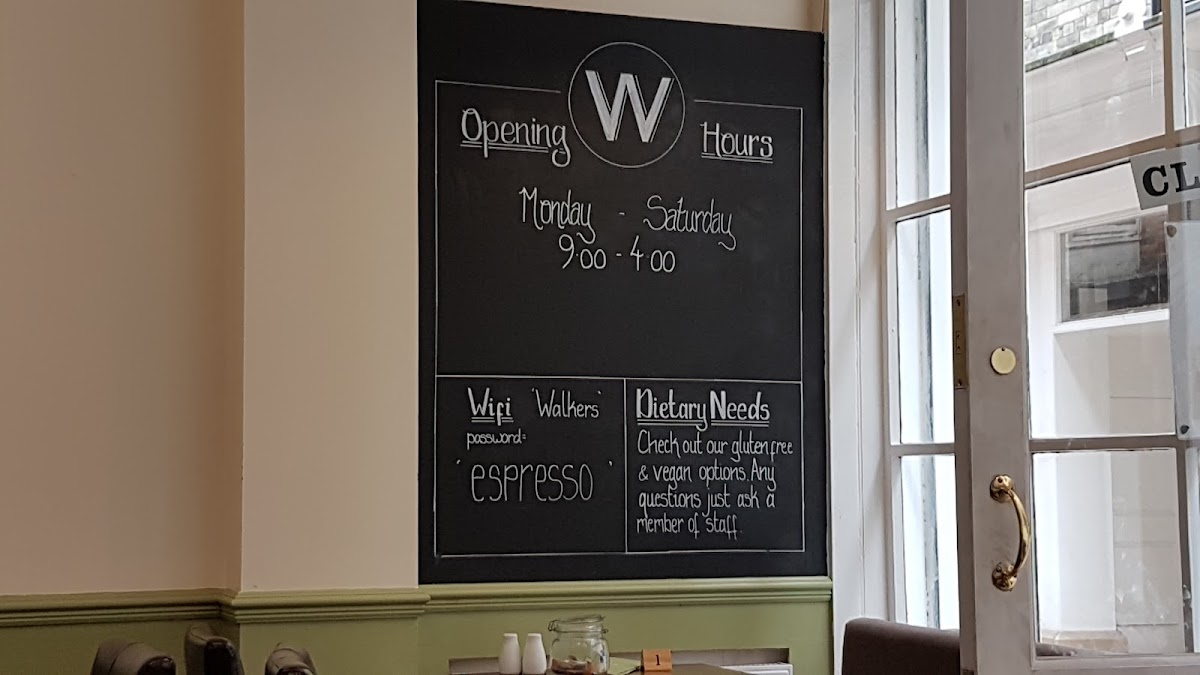 W
Opening Hours
Monday - Saturday
9.00 - 4.00
Wifi 'Walkers'
password:
'espresso'
Dietary Needs
Check out our gluten free
& vegan options. Any
questions just ask a
member of staff.
CL
1